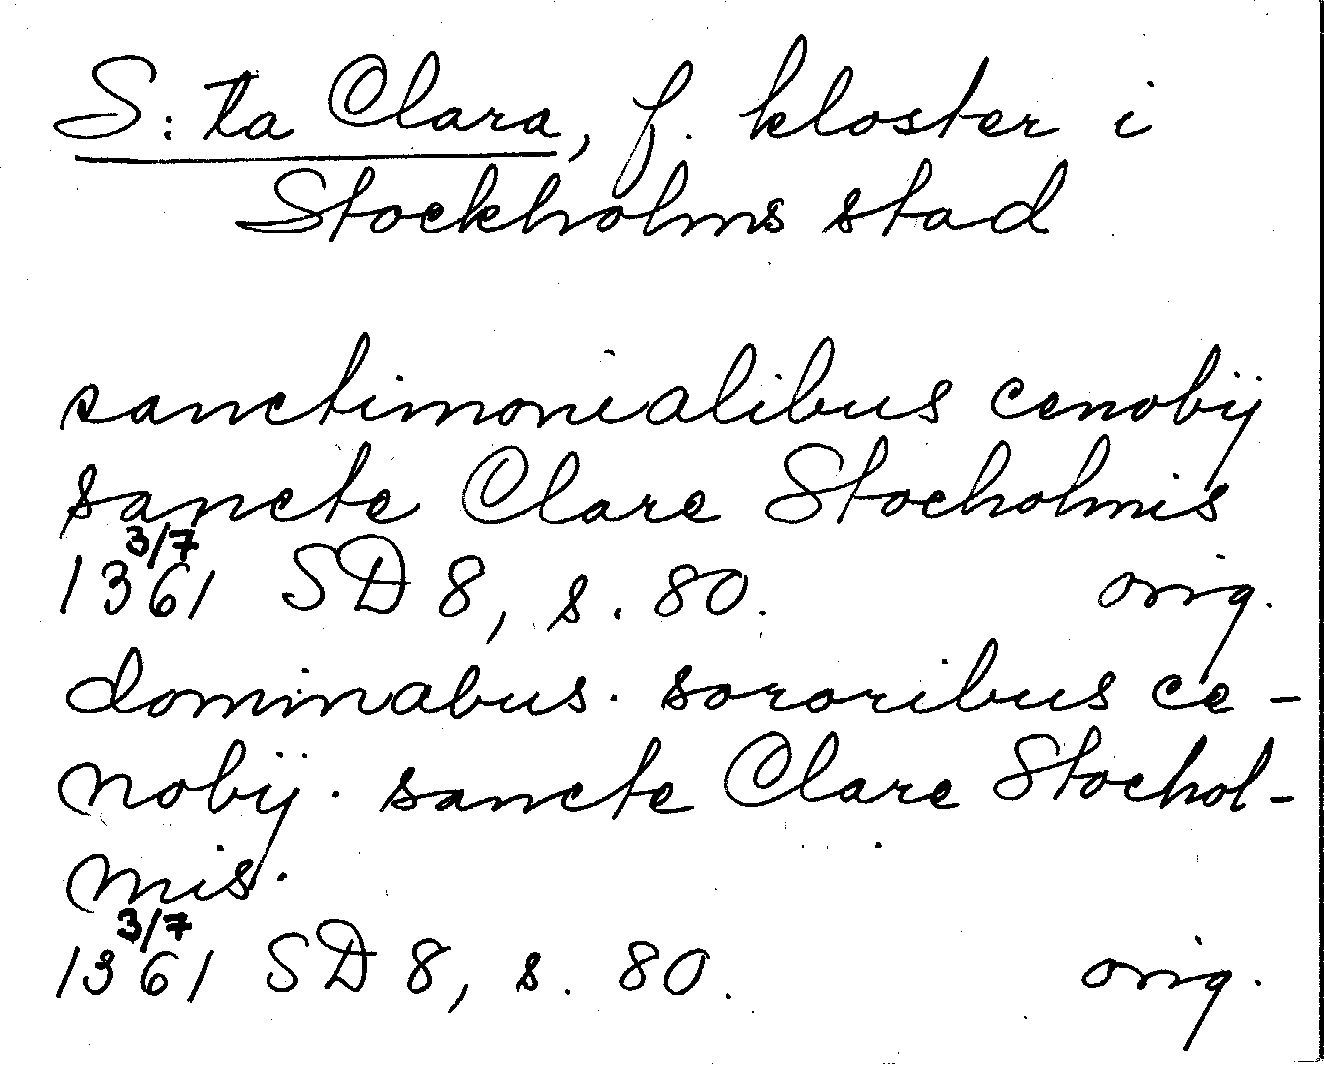 S:ta Clara, f. kloster i
Stockholms stad
sanctimonialibus cenobij
sancte Clare Stocholmis
3/7
1361 SD 8, s. 80. orig.
dominabus. sororibus ce-
nobij. sancte Clare Stochol-
mis.
3/7
1361 SD 8, s. 80. orig.